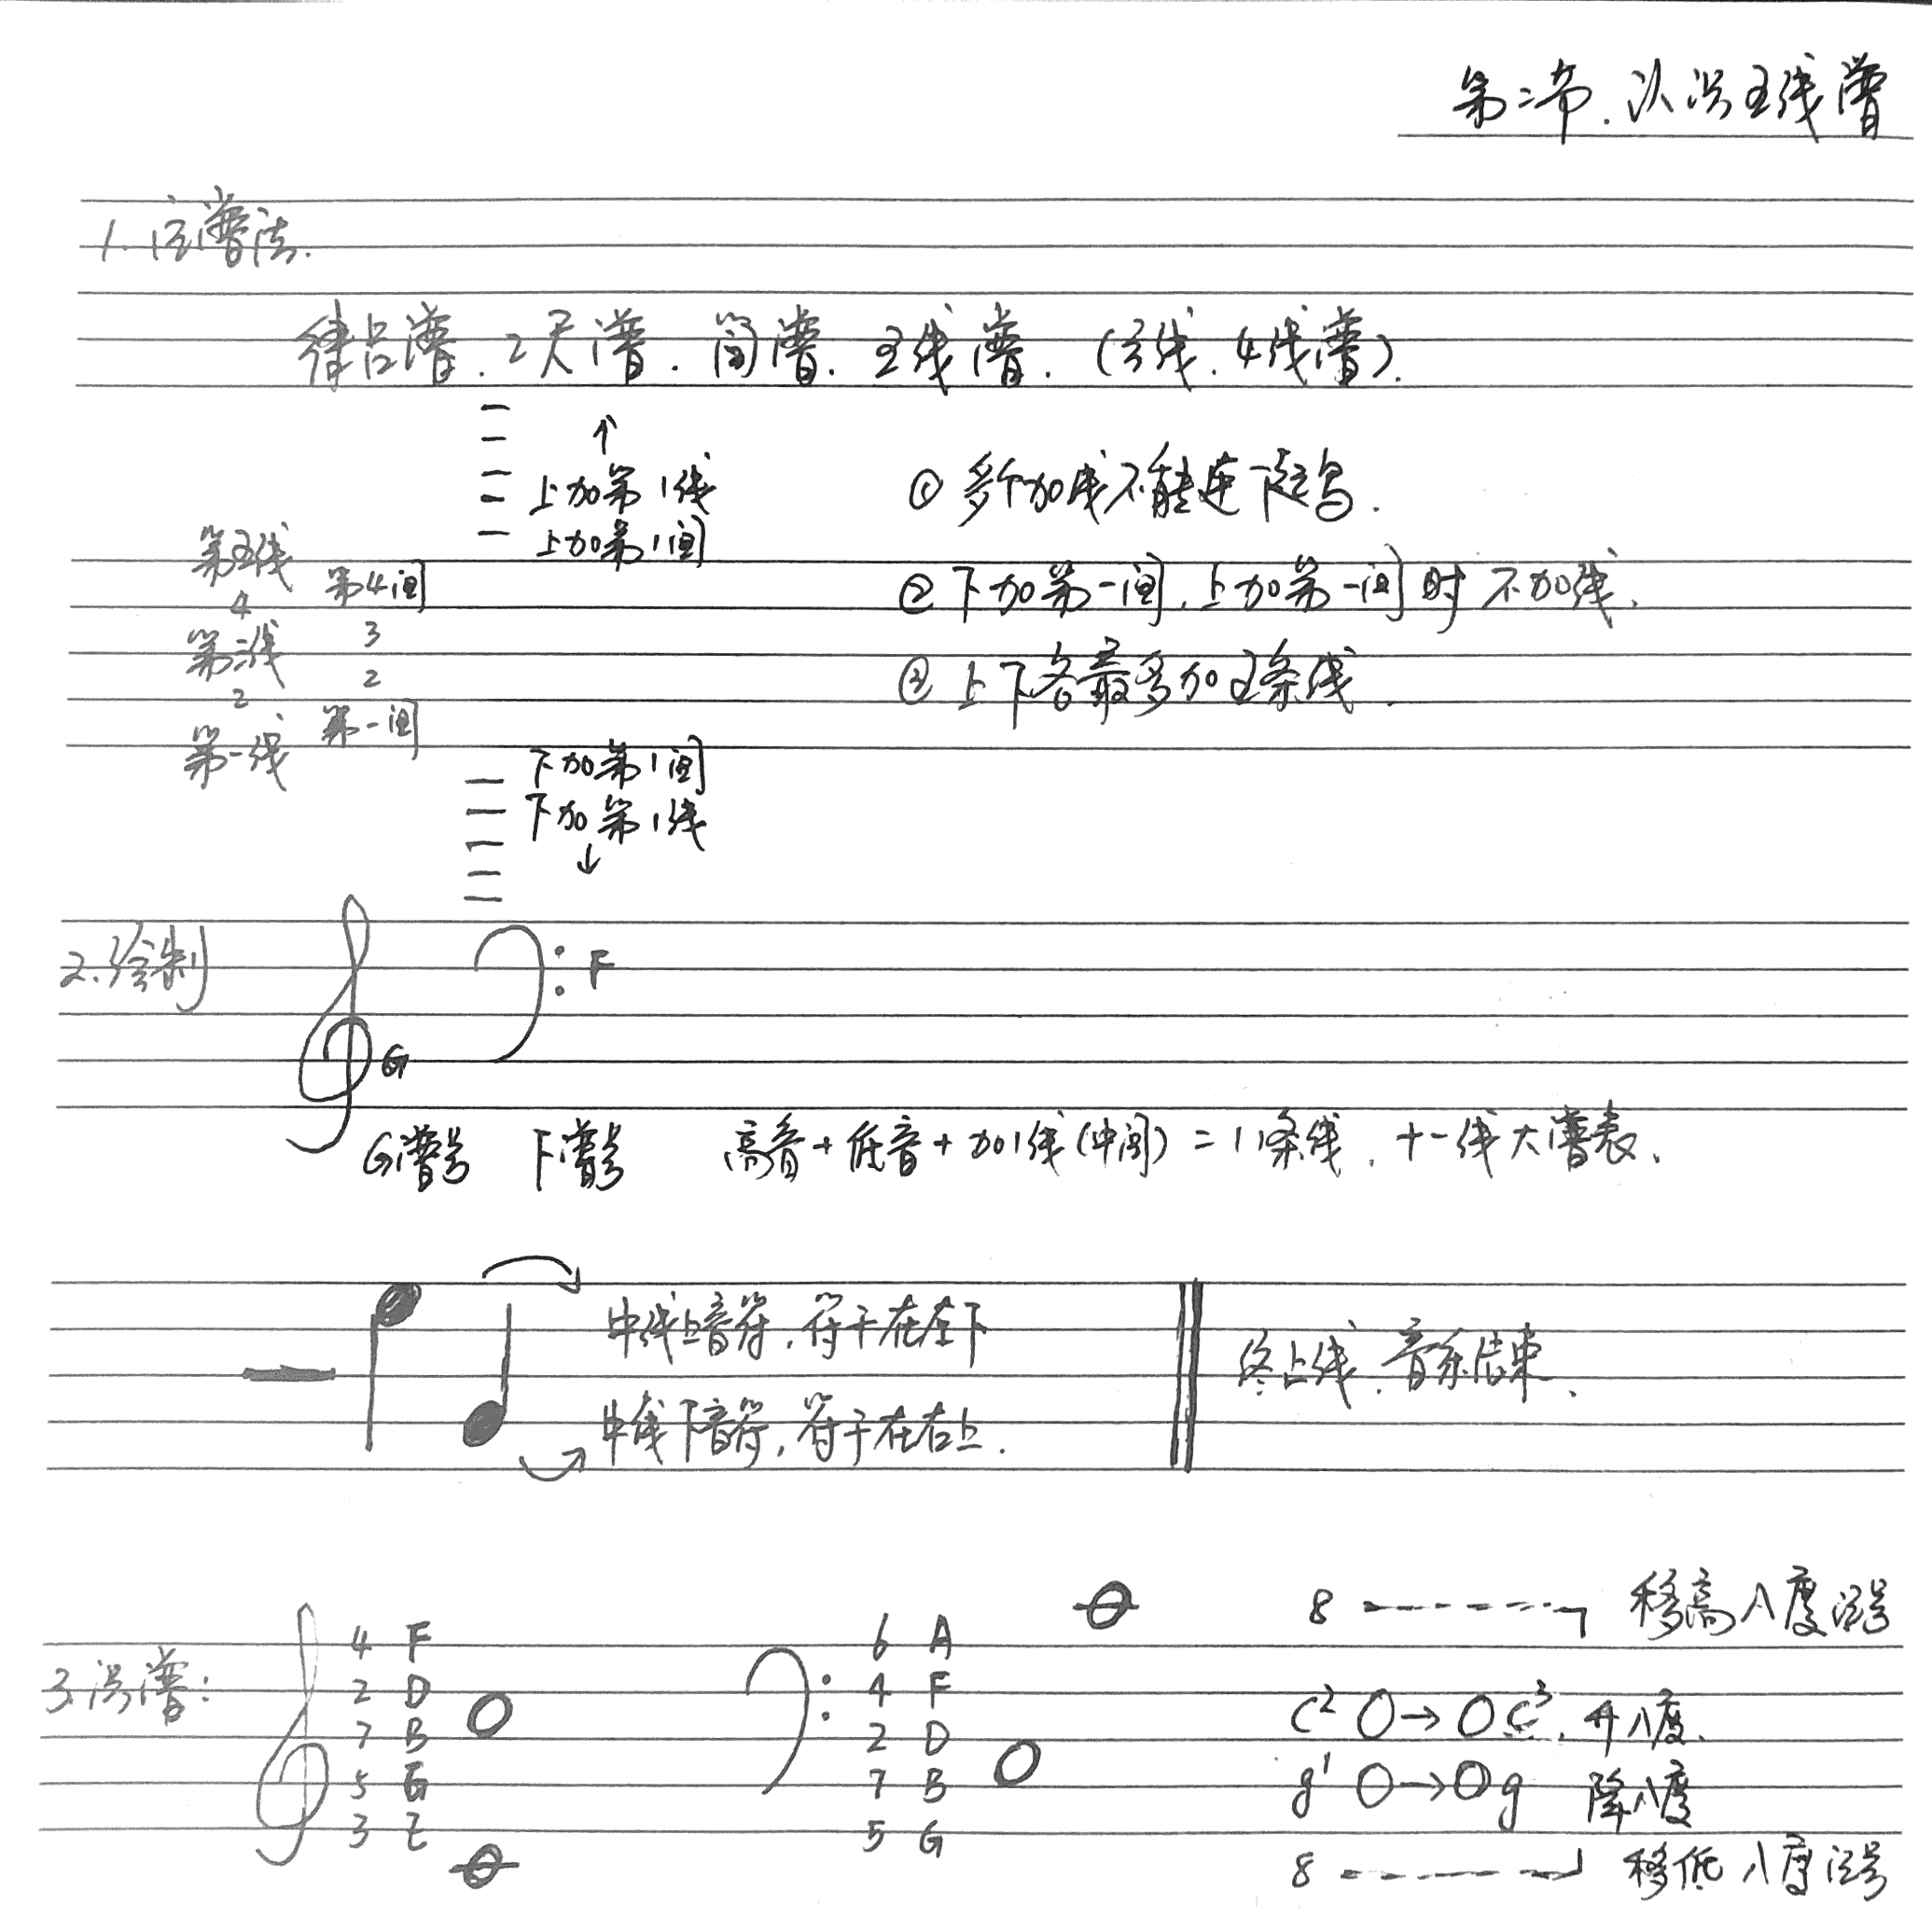 第二节. 认识五线谱
1. 记谱法.
律吕谱. 工尺谱. 简谱. 五线谱. (3线. 4线谱).
↑
上加第1线
上加第1间
① 多个加线不能连一起写.
第五线 第4间
4
② 下加第一间, 上加第一间时不加线.
3
第三线
2
③ 上下各最多加五条线.
2
第一间
第一线
下加第1间
下加第1线
↓
2. 绘制
F
G
G谱号 F谱号 高音+低音+加1线(中间) = 11条线. 十一线大谱表.
中线上音符, 符干在左下
中线下音符, 符干在右上.
终止线. 音乐结束.
8 移高八度记号
3. 识谱:
4 F
2 D
7 B
5 G
3 E
6 A
4 F
2 D
7 B
5 G
c² O→O c³. 升八度.
g¹ O→O g 降八度
8 移低八度记号